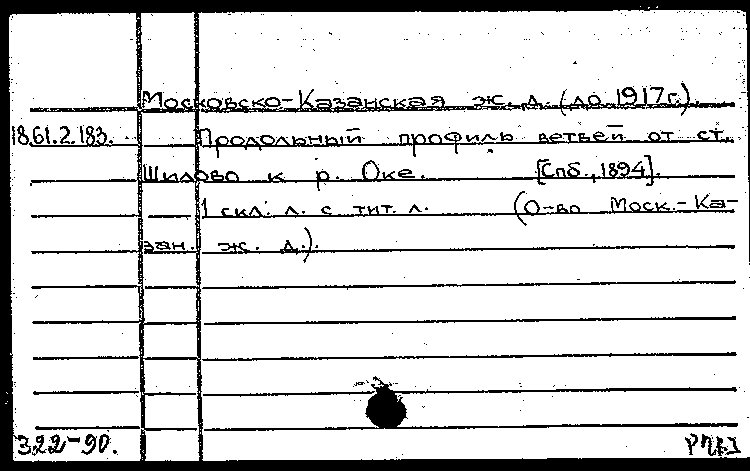 Московско-Казанская ж. д. (до 1917г.).
18.61.2.183. Продольный профиль ветвей от ст.
Шилово к р. Оке. [Спб., 1894].
1 скл. л. с тит. л. (О-во Моск.-Ка-
зан. ж. д.).
322-90.